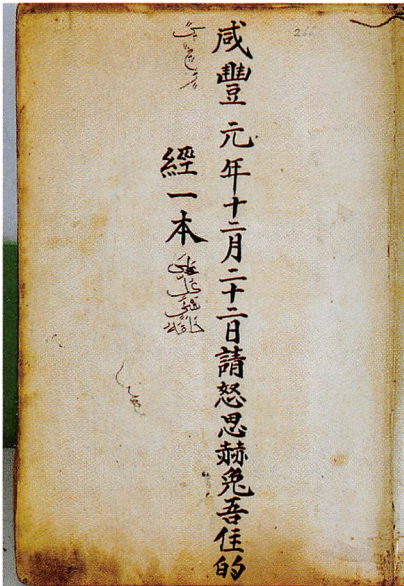 咸豐元年十二月二十二日請怒思赫兔吾住的
經一本